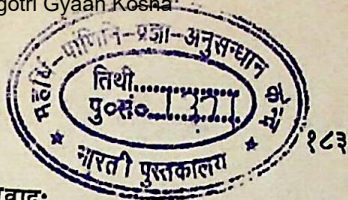 gotri Gyaan Kosha
महर्षि-पाणिनि-प्रज्ञा-अनुसन्धान केन्द्र
तिथी..............
पु०सं०...1371
* भारती पुस्तकालय *
१८३
वादः